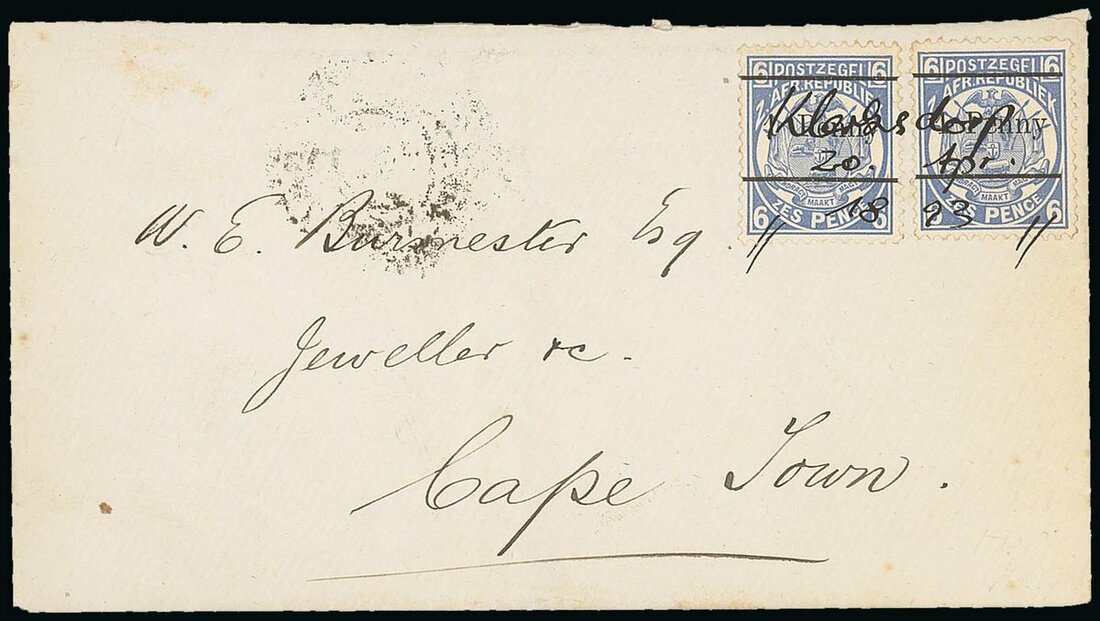 6 POSTZEGEL 6
Z. AFR. REPUBLIEK
Penny
EENDRAGT MAAKT MAGT
6 ZES PENCE 6
6 POSTZEGEL 6
Z. AFR. REPUBLIEK
Penny
EENDRAGT MAAKT MAGT
6 ZES PENCE 6
Klerksdorp
20. Apr.
18 93
W. E. Burmester Esq
Jeweller &c.
Cape Town.